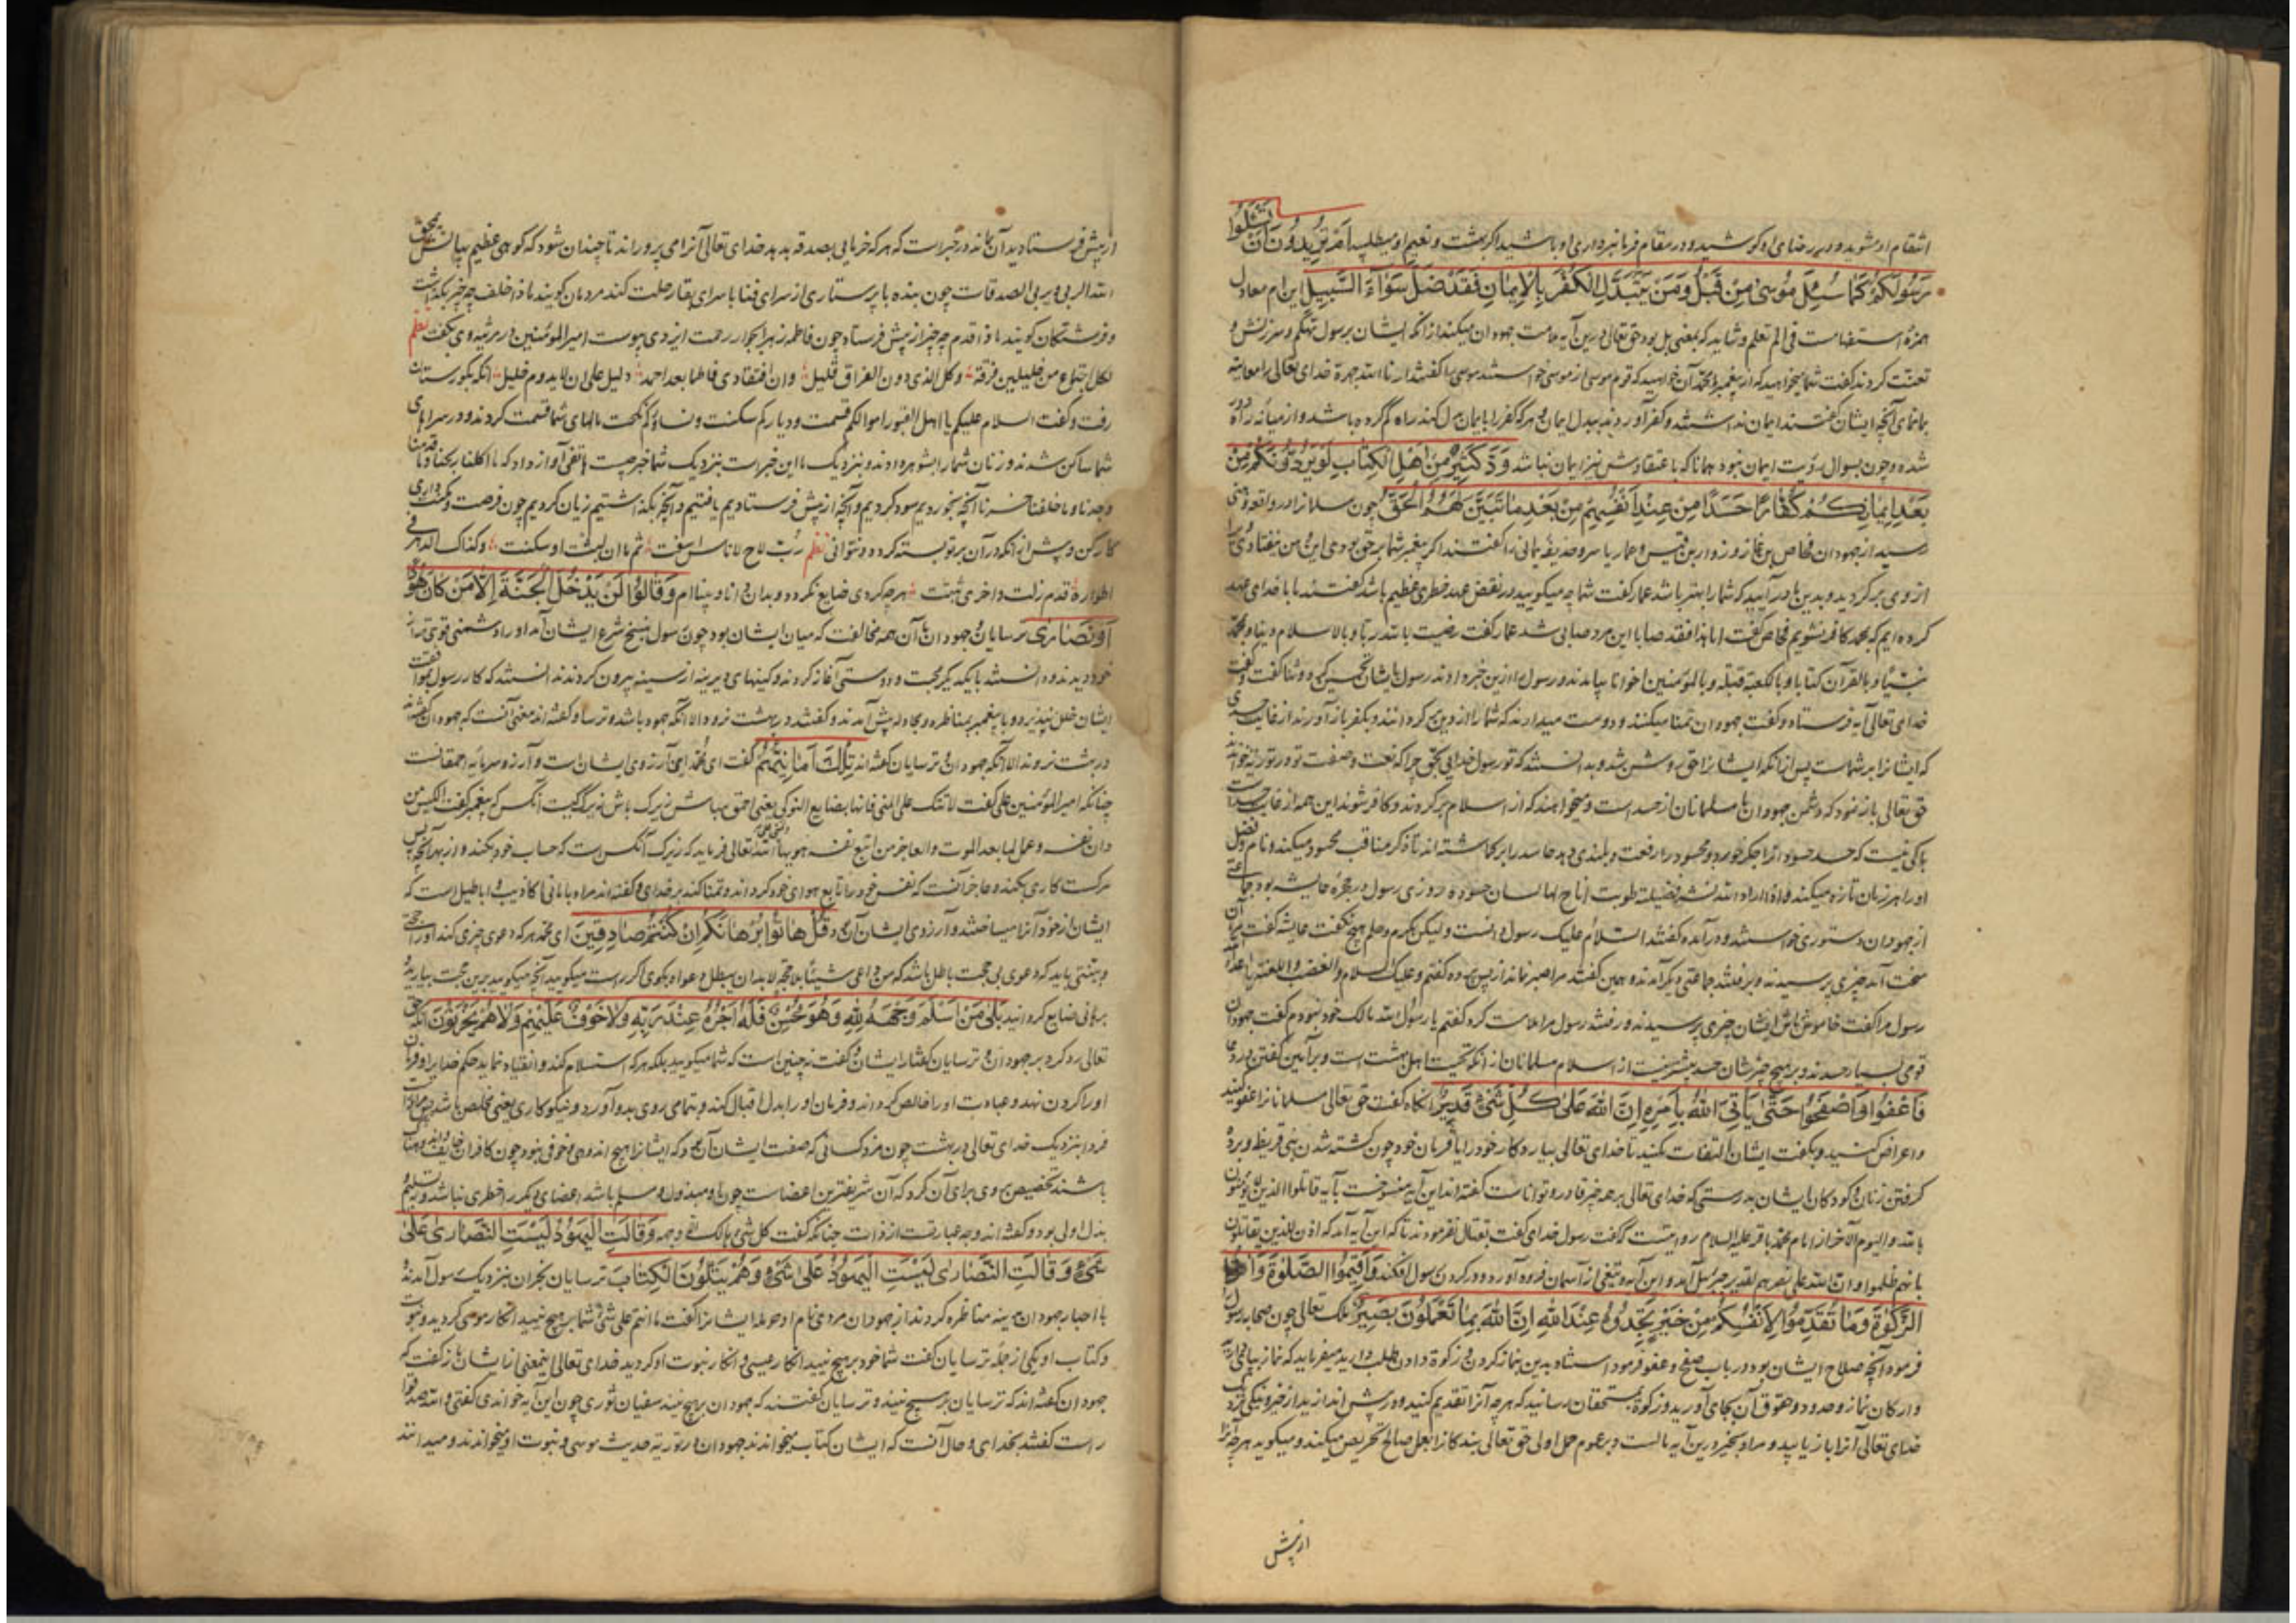 انتقام او مشوید و در رضای او کوشید و در مقام فرمانبرداری او باشید اگر بهشت و نعیم او میطلبید اَمْ تُرِيدُونَ اَنْ تَسْئَلُوا
رَسُولَكُمْ كَمَا سُئِلَ مُوسى مِنْ قَبْلُ وَمَنْ يَتَبَدَّلِ الْكُفْرَ بِالْاِيمَانِ فَقَدْ ضَلَّ سَوَاءَ السَّبِيلِ این ام معادل
همزهٔ استفهامست فی الم تعلم و شاید که بمعنی بل بود حق تعالی درین آیه ملامت جهودان میکند از آنکه ایشان برسول تهکم و سرزنش و
تعنت کردند گفت شما میخواهید که از پیغمبر محمد آن خواهید که قوم موسی از موسی خواستند موسی را گفتند ارنا الله جهرة خدای تعالی را معاینه
بما نمای آنچه ایشان گفتند ایمان نداشتند و کفر آوردند ببدل ایمان و هر که کفر را بایمان بدل کند راه گم کرده باشد و از میانه راه
شده و چون بسوال رؤیت ایمان نبود همانا که با عتقادش نیز ایمان نباشد وَدَّ كَثِيرٌ مِنْ اَهْلِ الْكِتَابِ لَوْ يَرُدُّونَكُمْ مِنْ
بَعْدِ اِيمَانِكُمْ كُفَّارًا حَسَدًا مِنْ عِنْدِ اَنْفُسِهِمْ مِنْ بَعْدِ مَا تَبَيَّنَ لَهُمُ الْحَقُّ چون مسلمانان را در واقعه
رسید از جهودان فخاص بن عازورا و زید بن قیس عمار یاسر و حذیفه یمانی را گفتند اگر پیغمبر شما بر حق بودی این
از وی برگردید و بدین ما در آیید که شما را بهتر باشد عمار گفت شما چه میگویید در نقض عهد خطری عظیم باشد گفتند ما با خدای عهد
کرده ایم که بمحمد کافر نشویم فخاص گفت اما هذا فقد صبا این مرد صابی شد عمار گفت رضیت بالله ربا و بالاسلام دینا و بمحمد
نبیا و بالقرآن کتابا و بالکعبة قبلة و بالمؤمنین اخوانا بیامدند و رسول را ازین خبر دادند رسول بایشان تحسین کرد و ثنا گفت
خدای تعالی آیه فرستاد و گفت جهودان تمنا میکنند و دوست میدارند که شما را از دین برگردانند و بکفر باز آورند از غایت حسدی
که ایشانرا بر شماست پس از آنکه ایشانرا حق روشن شد و بدانستند که تو رسول خدایی بحق چرا که نعت و صفت تو در توریة خوانده
حق تعالی باز نمود که دشمنی جهودان با مسلمانان از حسد است و میخواهند که از اسلام برگردند و کافر شوند این همه از غایت حسد است
باکی نیست که حسد حسود را جگر خورد و محسود را رفعت و بلندی دهد حاسد را بر گماشته اند تا ذکر مناقب محسود میکند و نام و
او را هر زبان تازه میکند و اذا اراد الله نشر فضیلة طویت اتاح لها لسان حسود روزی رسول در حجرهٔ عایشه بود جماعتی
از جهودان دستوری خواستند و در آمدند و گفتند السام علیک رسول دانست و لیکن بکرم و حلم هیچ نگفت عایشه گفت مرا آن
سخت آمد چیزی پرسیدند و برفتند جماعتی دیگر آمدند و همین گفتند مرا صبر نماند از پس پرده گفتم و علیک السلام و الغضب و اللعنة یا اعداء الله
رسول مرا گفت خاموش باش ایشان چیزی پرسیدند و رفتند رسول مرا ملامت کرد گفتم یا رسول الله مالک خود نبودم گفت جهودان
قومی بسیار حسدند و بر هیچ چیزشان حسد بیش نیست از اسلام مسلمانان از آنکه تحیت اهل بهشت است و بر آمین گفتن
فَاعْفُوا وَاصْفَحُوا حَتّى يَأْتِيَ اللّٰهُ بِاَمْرِهِ اِنَّ اللّٰهَ عَلى كُلِّ شَيْءٍ قَدِيرٌ آنگاه گفت حق تعالی مسلمانانرا عفو کنید
و اعراض کنید و بگفت ایشان التفات مکنید تا خدای تعالی بیارد کار خود را یا فرمان خود چون کشته شدن بنی قریظه و برده
گرفتن زنان و کودکان ایشان بدرستی که خدای تعالی بر همه چیز قادر و تواناست گفته اند این آیه منسوخست بآیه قاتلوا الذین لا یؤمنون
بالله و الیوم الآخر از امام محمد باقر علیه السلام روایتست که گفت رسول خدای گفت بقتال نفرمودند تا که این آیه آمد که اذن للذین یقاتلون
بانهم ظلموا و ان الله علی نصرهم لقدیر جبرئیل آمد و این آیه و تیغی از آسمان فرود آورد و در گردن رسول افکند وَاَقِيمُوا الصَّلٰوةَ وَآتُوا
الزَّكٰوةَ وَمَا تُقَدِّمُوا لِاَنْفُسِكُمْ مِنْ خَيْرٍ تَجِدُوهُ عِنْدَ اللّٰهِ اِنَّ اللّٰهَ بِمَا تَعْمَلُونَ بَصِيرٌ ملک تعالی چون صحابه رسول را
فرمود آنچه صلاح ایشان بود در باب صفح و عفو فرمود استناد بدین نماز کردن و زکوة دادن طلب دارید میفرماید که نماز بپای دارید
و ارکان نماز و حدود و حقوق آن بجای آورید و زکوة بمستحقان رسانید که هر چه آنرا تقدیم کنید و در پیش اندازید از خیر و نیکی نزدیک
خدای تعالی آنرا باز یابید و مراد بخیر درین آیه مالست و بر عموم حمل اولی حق تعالی بندگانرا بعمل صالح تحریص میکند و میگوید هر چه آنرا
از پیش
از پیش فرستادید آن بماند در خبر است که هر که خرمایی بصدقه بدهد خدای تعالی آنرا می پروراند تا چندان شود که کوهی عظیم
الله الربی و یربی الصدقات چون بنده با پرستاری از سرای فنا با سرای بقا رحلت کند مردمان گویند ماذا خلف چه چیز بگذاشت
و فرشتگان گویند ماذا قدم چه چیز از پیش فرستاد چون فاطمه زهرا بجوار رحمت ایزدی پیوست امیر المؤمنین در مرثیه وی گفت نظم
لکل اجتماع من خلیلین فرقة و کل الذی دون الفراق قلیل و ان افتقادی فاطما بعد احمد دلیل علی ان لا یدوم خلیل آنکه بگورستان
رفت و گفت السلام علیکم یا اهل القبور اموالکم قسمت و دیارکم سکنت و نساؤکم نکحت مالهای شما قسمت کردند و در سراهای
شما ساکن شدند و زنان شما را بشوهر دادند و نزدیک ما این خبر است بنزدیک شما خبر چیست هاتفی آواز داد که ما اکلنا ربحنا و ما قدمنا
وجدنا و ما خلفنا خسرنا آنچه بخوردیم سود کردیم و آنچه از پیش فرستادیم یافتیم و آنچه بگذاشتیم زیان کردیم چون فرصت و مکنت داری
کار کن و پیش از آنکه در آن بر تو بسته گردد و نتوانی نظم
اطواره قدم زلت و اخری ثبتت هر چه کردی ضایع نگردد و بدان دانا و بینا ام وَقَالُوا لَنْ يَدْخُلَ الْجَنَّةَ اِلَّا مَنْ كَانَ هُودًا
اَوْ نَصَارى ترسایان و جهودان با آن همه مخالفت که میان ایشان بود چون رسول بنسخ شرع ایشان آمد او را دشمنی قوی تر از
خود دیدند و دانستند با یکدیگر محبت و دوستی آغاز کردند و کینهای دیرینه از سینه بیرون کردند دانستند که کار رسول بموافقت
ایشان خلل نپذیرد و با پیغمبر بمناظره و مجادله پیش آمدند و گفتند در بهشت نرود الا آنکه جهود باشد و ترسا و گفته اند معنی آنست که جهودان گفتند
در بهشت نروند الا آنکه جهودان و ترسایان گفته اند تِلْكَ اَمَانِيُّهُمْ گفت ای محمد این آرزوی ایشان است و آرزو سرمایه احمقانست
چنانکه امیر المؤمنین علی گفت لا تتکل علی المنی فانها بضایع النوکی یعنی احمق مباش زیرک باش زیرک کیست آنکس که پیغمبر گفت الکیس من
دان نفسه و عمل لما بعد الموت و العاجز من اتبع نفسه هویها تعالی فرماید که زیرک آنکس است که حساب خود بکند و از بهر آنچه پس
مرگست کاری بکند و عاجز آنست که نفس خود را تابع هوای خود گرداند و تمنا کند بر خدای و گفته اند مراد بامانی اکاذیب و اباطیل است که
ایشان از خود آنرا میساختند و آرزوی ایشان آن بود قُلْ هَاتُوا بُرْهَانَكُمْ اِنْ كُنْتُمْ صَادِقِينَ ای محمد هر که دعوی چیزی کند او را حجتی
و بینتی باید که دعوی بی حجت باطل باشد که من ادعی شیئا بلا حجة لا بد ان یبطل دعواه بگوی اگر راست میگویید آنچه میگویید برین حجت بیارید
بَلى مَنْ اَسْلَمَ وَجْهَهُ لِلّٰهِ وَهُوَ مُحْسِنٌ فَلَهُ اَجْرُهُ عِنْدَ رَبِّهِ وَلَا خَوْفٌ عَلَيْهِمْ وَلَا هُمْ يَحْزَنُونَ
تعالی رد کرد بر جهودان و ترسایان گفتار ایشان و گفت نه چنین است که شما میگویید بلکه هر که استسلام کند و انقیاد نماید حکم خدایرا و فرمان
او را گردن نهد و عبادت او را خالص گرداند و فرمان او را بدل اقبال کند و بتمامی روی بدو آورد و نیکوکاری یعنی مخلص باشد
فردا بنزدیک خدای تعالی در بهشت چون مزد کسانی که صفت ایشان آن بود که ایشانرا هیچ اندوهی و خوفی نبود چون کافران خایف
باشند تخصیص روی برای آن کرد که آن شریفترین اعضاست چون او مبذول و مسلم باشد اعضای دیگر را خطری نباشد و به تسلیم
بذل اولی بود و گفته اند وجه عبارتست از ذات چنانکه گفت کل شیء هالک الا وجهه وَقَالَتِ الْيَهُودُ لَيْسَتِ النَّصَارى عَلى
شَيْءٍ وَقَالَتِ النَّصَارى لَيْسَتِ الْيَهُودُ عَلى شَيْءٍ وَهُمْ يَتْلُونَ الْكِتَابَ ترسایان نجران بنزدیک رسول آمدند
با احبار جهودان مدینه مناظره کردند از جهودان مردی نام او حرمله ایشانرا گفت ما انتم علی شیء شما بر هیچ نیید انکار موسی کردید و نبوت
و کتاب او یکی از جمله ترسایان گفت شما خود بر هیچ نیید انکار عیسی و انکار نبوت او کردید خدای تعالی اینمعنی از ایشان باز گفت که
جهودان گفته اند که ترسایان بر هیچ نیند و ترسایان گفتند که جهودان بر هیچ نیند سفیان ثوری چون این آیه خواندی گفتی والله صدقوا
راست گفتند بخدای و حال آنست که ایشان کتاب میخوانند جهودان در توریة حدیث موسی و نبوت او میخواندند و میدانند